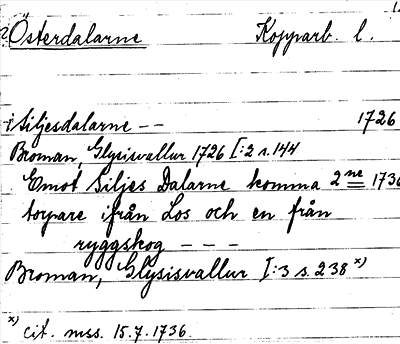 Österdalarne Kopparb. l.
i Siljesdalarne -- 1726
Broman, Glysisvallur 1726 I:2 s.144
Emot Siljes Dalarne komma 2ne 1736
torpare ifrån Los och en från
ryggskog - - -
Broman, Glysisvallur I:3 s. 238 x)
x) cit. mss. 15.7.1736.